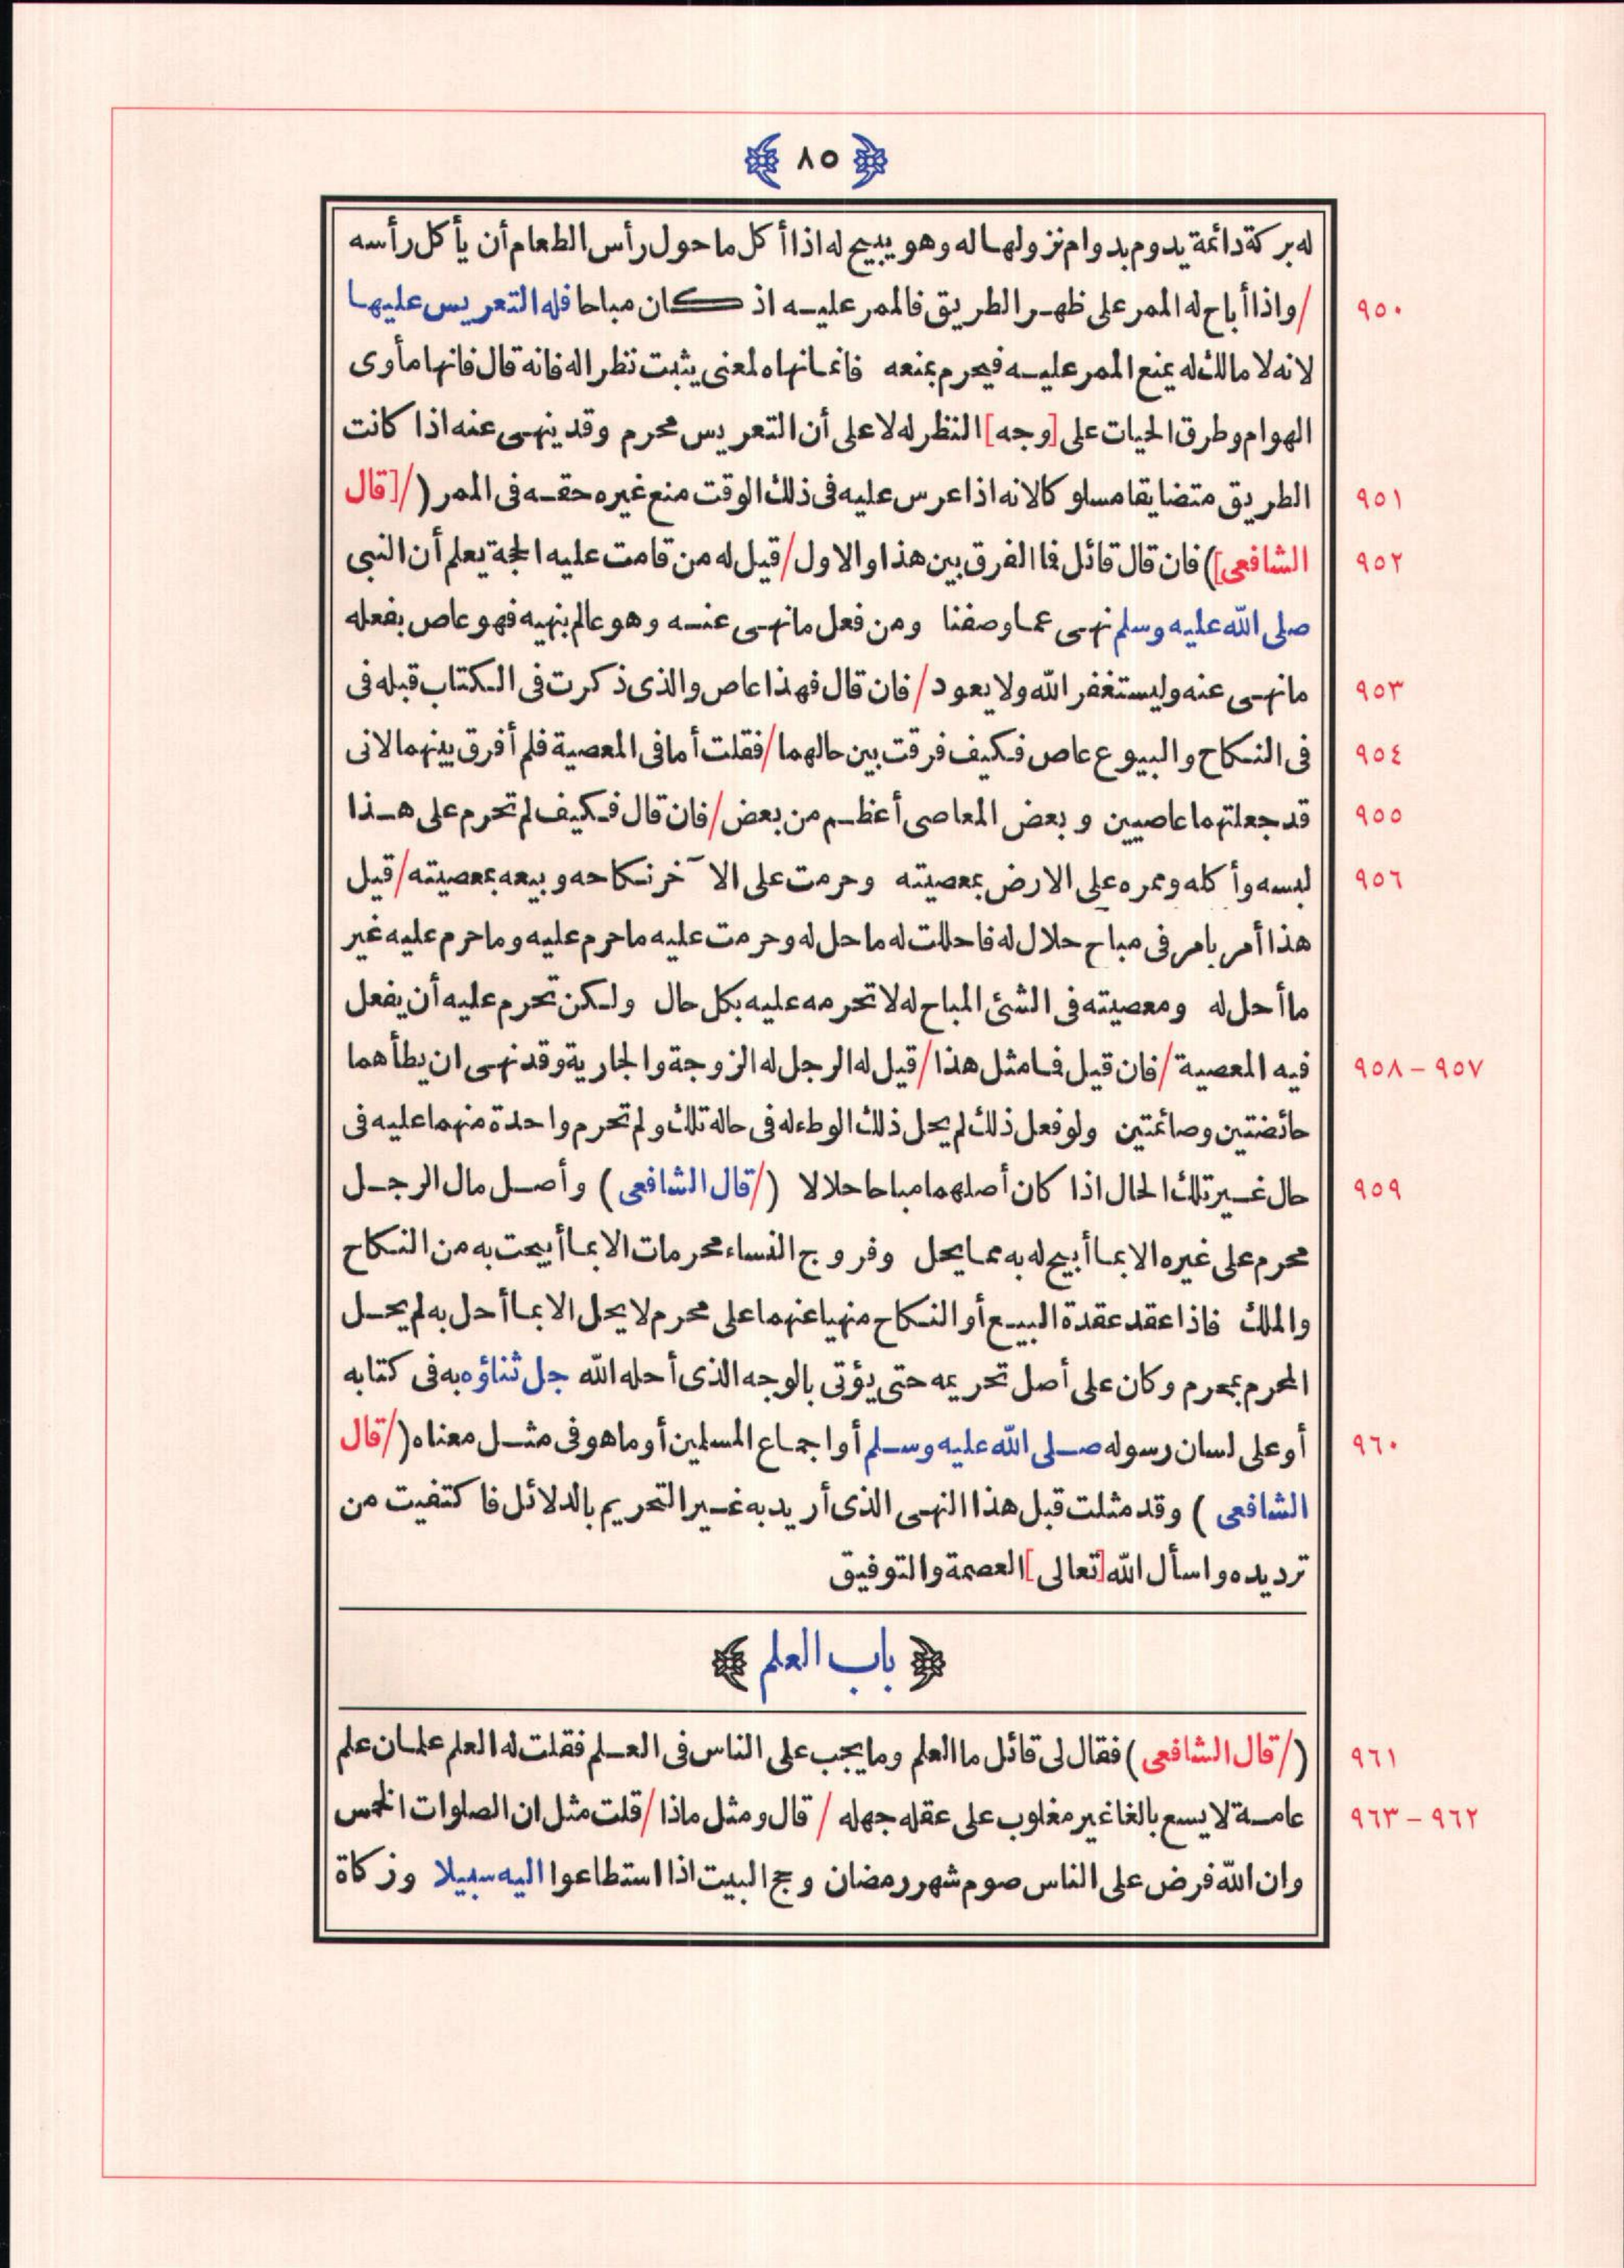 ٨٥
له بركة دائمة يدوم بدوام نزولها له وهو يبيح له اذا أكل ما حول رأس الطعام أن يأكل رأسه
٩٥٠ /واذا أباح له الممر على ظهر الطريق فالممر عليه اذ كان مباحا فله التعريس عليها
لانه لا مالك له يمنع الممر عليه فيحرم بمنعه فانما نهاه لمعنى يثبت نظرا له فانه قال فانها مأوى
الهوام وطرق الحيات على [وجه] النظر له لا على أن التعريس محرم وقد ينهى عنه اذا كانت
٩٥١ الطريق متضايقا مسلوكا لانه اذا عرس عليه فى ذلك الوقت منع غيره حقه فى الممر (/[قال
٩٥٢ الشافعى]) فان قال قائل فا الفرق بين هذا والاول/قيل له من قامت عليه الحجة يعلم أن النبى
صلى الله عليه وسلم نهى عما وصفنا ومن فعل ما نهى عنه وهو عالم بنهيه فهو عاص بفعله
٩٥٣ ما نهى عنه وليستغفر الله ولا يعود/فان قال فهذا عاص والذى ذكرت فى الكتاب قبله فى
٩٥٤ فى النكاح والبيوع عاص فكيف فرقت بين حالهما/فقلت أما فى المعصية فلم أفرق بينهما لانى
٩٥٥ قد جعلتهما عاصيين وبعض المعاصى أعظم من بعض/فان قال فكيف لم تحرم على هذا
٩٥٦ لبسه وأكله وممره على الارض بمعصيته وحرمت على الآخر نكاحه وبيعه بمعصيته/قيل
هذا أمر بامر فى مباح حلال له فاحللت له ما حل له وحرمت عليه ما حرم عليه وما حرم عليه غير
ما أحل له ومعصيته فى الشئ المباح له لا تحرمه عليه بكل حال ولكن تحرم عليه أن يفعل
٩٥٧ – ٩٥٨ فيه المعصية/فان قيل فما مثل هذا/قيل له الرجل له الزوجة والجارية وقد نهى ان يطأهما
حائضتين وصائمتين ولو فعل ذلك لم يحل ذلك الوطء له فى حاله تلك ولم تحرم واحدة منهما عليه فى
٩٥٩ حال غير تلك الحال اذا كان أصلهما مباحا حلالا (/قال الشافعى) وأصل مال الرجل
محرم على غيره الا بما أبيح له به مما يحل وفروج النساء محرمات الا بما أبيحت به من النكاح
والملك فاذا عقد عقدة البيع أو النكاح منهيا عنهما على محرم لا يحل الا بما أحل به لم يحل
المحرم بمحرم وكان على أصل تحريمه حتى يؤتى بالوجه الذى أحله الله جل ثناؤه به فى كتابه
٩٦٠ أو على لسان رسوله صلى الله عليه وسلم أو اجماع المسلمين أو ما هو فى مثل معناه (/قال
الشافعى) وقد مثلت قبل هذا النهى الذى أريد به غير التحريم بالدلائل فاكتفيت من
ترديده واسأل الله [تعالى] العصمة والتوفيق
باب العلم
٩٦١ (/قال الشافعى) فقال لى قائل ما العلم وما يجب على الناس فى العلم فقلت له العلم علمان علم
٩٦٢ – ٩٦٣ عامة لا يسع بالغا غير مغلوب على عقله جهله /قال ومثل ماذا/قلت مثل ان الصلوات الخمس
وان الله فرض على الناس صوم شهر رمضان وحج البيت اذا استطاعوا اليه سبيلا وزكاة